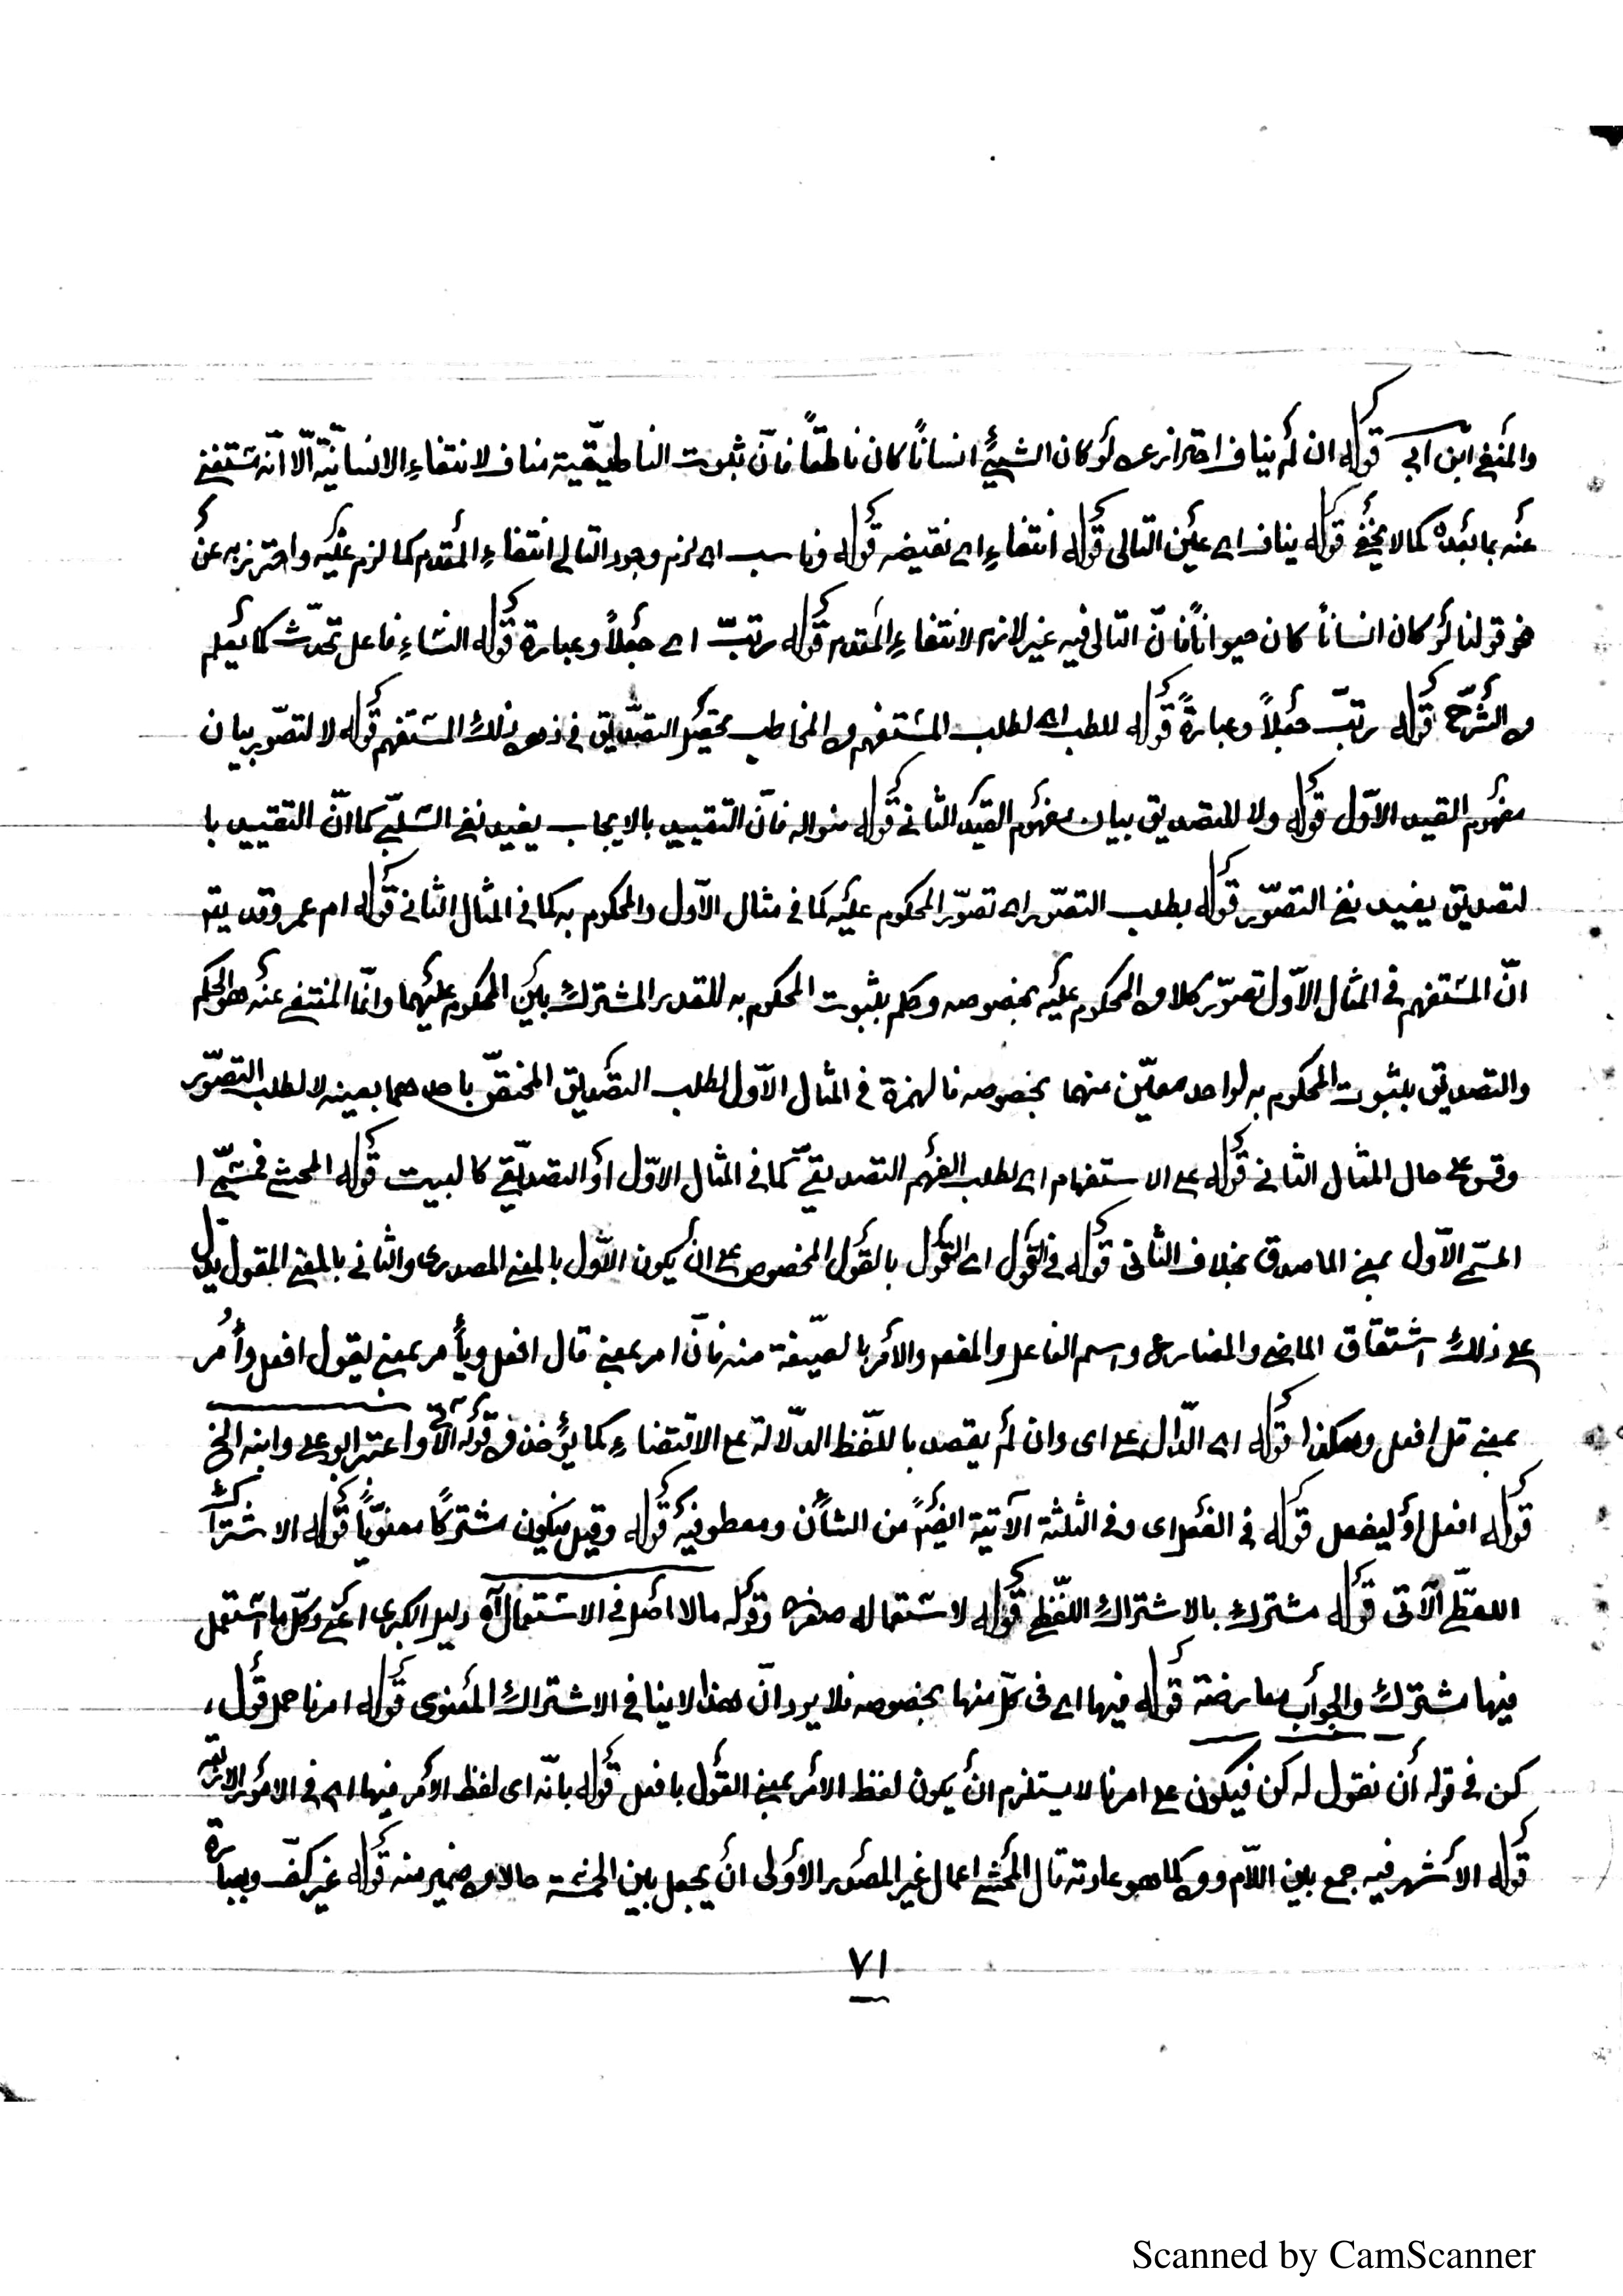 والمنفي ابن ابي قوله ان لم يناف احترازعن لو كان الشيئ انسانًا كان ناطقًا فانّ ثبوت الناطقيّة مناف لانتفاءِ الانسانيّة الّا انّه استغنى
عنه بما بعده كما لا يخفى قوله يناف اى عين التالى قوله انتفاءِ اى نقيضه قوله وناسب اى لزم وجود التالي انتفاءِ المقدم كما لزم عليه واحترز به عن
نحو قولنا لو كان انساناً كان حيواناً فانّ التالى فيه غير لازم لانتفاءِ المقدم قوله رتبّ اى جعلاً وعبارة قوله النشاءِ فاعل تحدّث كما يعلم
من الشّرح قوله رتبّ جعلاً وعبارةً قوله للطب اى لطلب المستفهم من المخاطب تحصيل التصديق في ذهن ذلك المستفهم قوله لا لتصوّر بيان
مفهوم القيد الاوّل قوله ولا للتصديق بيان مفهوم القيد الثانى قوله فانّ التقييد بالايجاب يفيد نفي السّلبيّ كما انّ التقييد با
لتصديق يفيد نفى التصوّر قوله بطلب التصوّر اى تصوّر المحكوم عليه كما فى مثال الاوّل والمحكوم به كما فى المثال الثانى قوله ام عمرو وقد يقم
انّ المستفهم في المثال الاوّل تصوّر كلا من المحكوم عليه بخصوصه وحكم بثبوت المحكوم به للقدر المشترك بين المحكوم عليهما وانّما المنتفى عنه هو الحكم
والتصديق بثبوت المحكوم به لواحد معيّن منهما بخصوصه فالهمزة في المثال الاوّل لطلب التصديق المختصّ باحدهما بعينه لا لطلب التصوّر
وقس على حال المثال الثانى قوله على الاستفهام اى لطلب الفهم التصديقيّ كما فى المثال الاوّل او التصديقيّ كالبيت قوله المحشى فمسمّى ا
المسمّى الاوّل بمعنى الماصدق بخلاف الثانى قوله فى القول اى القول بالقول المخصوص على ان يكون الاوّل بالمعنى المصدرى والثانى بالمعنى المقول يدل
على ذلك اشتقاق الماضى والمضارع واسم الفاعل والمفعول والامر بالصيغة منه فانّ امر بمعنى قال افعل ويأمر بمعنى يقول افعل وأمر
بمعنى قل افعل وهكذا قوله اى الدّال على اى وان لم يقصد باللّفظ الدلّالة على الاقتضاءِ كما يؤخذ من قوله الآتى واعتبر ابو على وابنه الخ
قوله افعل او ليفعل قوله فى الفعل اى وفى الثلثة الآتية ايضًا من الشأن ومعطوفيه قوله وقيل فيكون مشتركًا معنويًّا قوله الاشتراك
اللفظى الآتى قوله مشترك بالاشتراك اللفظى قوله لاستعماله صغرى وقوله مالا اصل فى الاستعمال آه دليل الكبرى اعنى وكلّ ما استعمل
فيها مشترك والجواب معارضة قوله فيها اى فى كلّ منها بخصوصه فلا يرد انّ هذا لا ينافي الاشتراك المعنوى قوله امرنا حمل قول
كن فى قوله أن نقول له كن فيكون على امرنا لا يستلزم ان يكون لفظ الامر بمعنى القول بافعل قوله بانّه اى لفظ الامر فيها اى فى الامور الاربعة
قوله الاشهر فيه جمع بين اللّام ومن كما هو عادته قال المحشى اعمال غير المصدر الاولى ان يجعل بين الخمسة حالا من ضمير منه قوله غير كفّ وبعبارة
٧١
Scanned by CamScanner